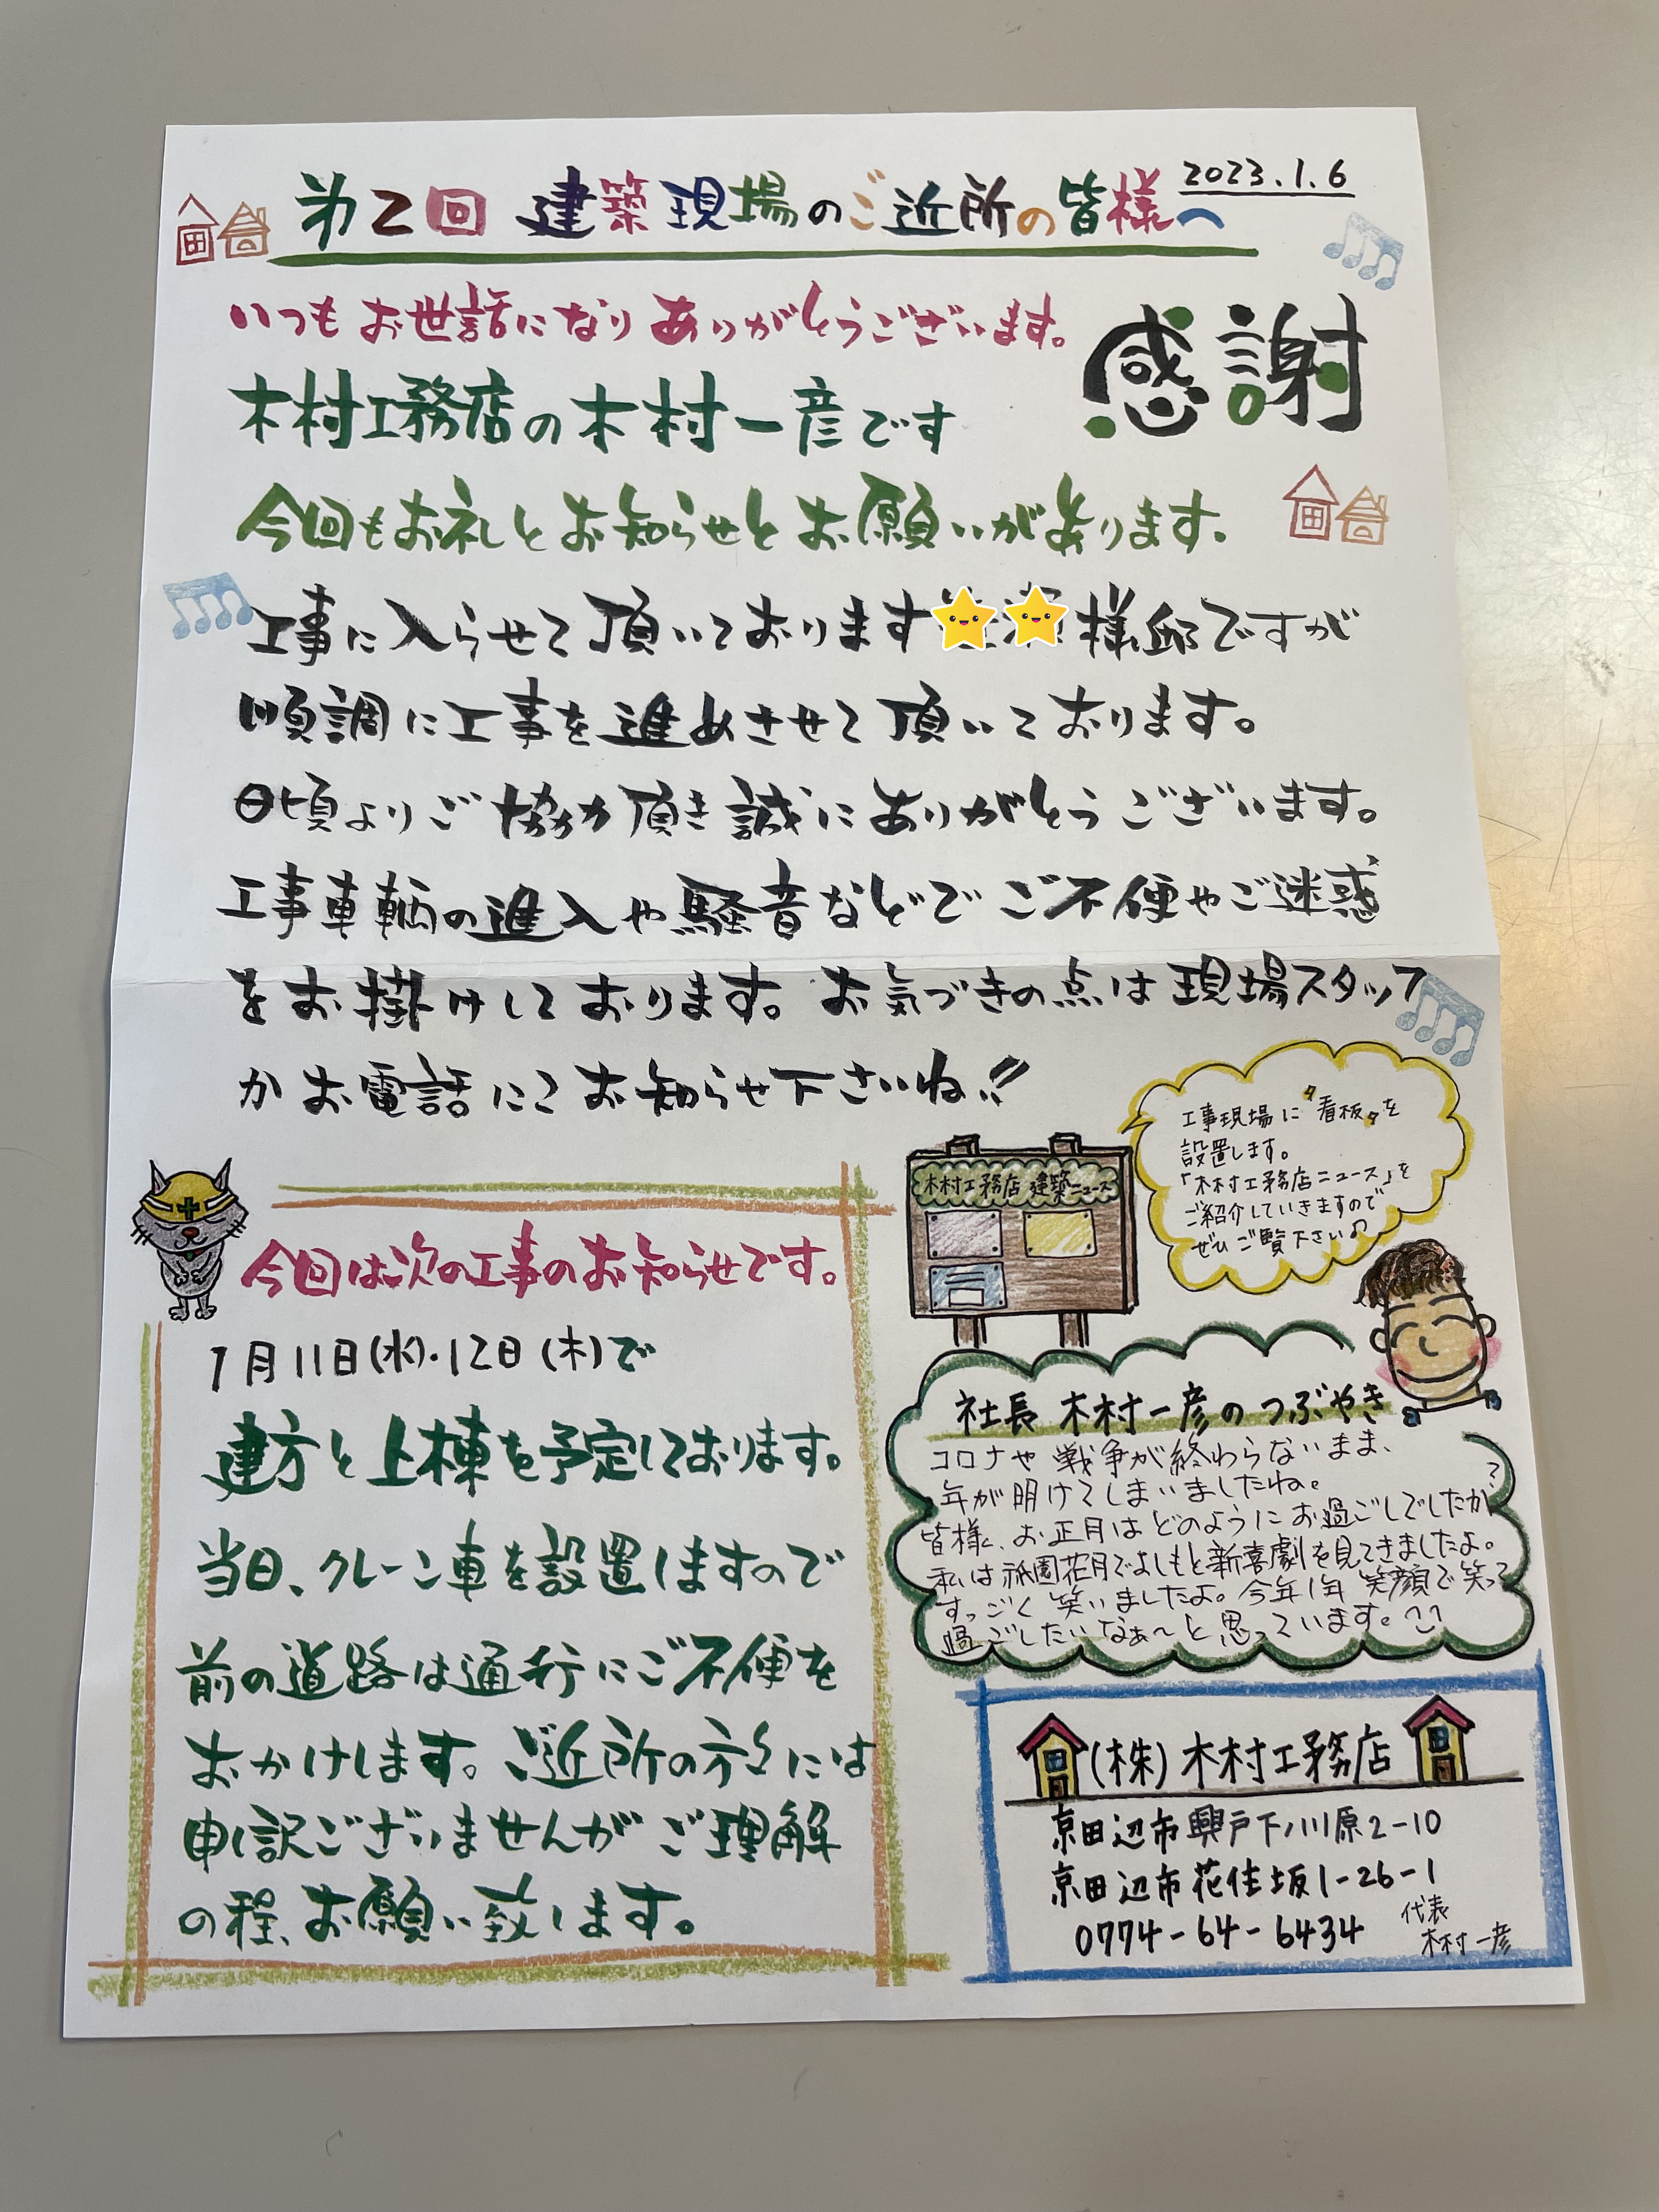 2023.1.6
第2回 建築現場のご近所の皆様へ
いつもお世話になりありがとうございます。
感謝
木村工務店の木村一彦です
今回もお礼とお知らせとお願いがあります。
工事に入らせて頂いております 様邸ですが
順調に工事を進めさせて頂いております。
日頃よりご協力頂き誠にありがとうございます。
工事車輌の進入や騒音などでご不便やご迷惑
をお掛けしております。お気づきの点は現場スタッフ
かお電話にてお知らせ下さいね!!
工事現場に"看板"を
設置します。
「木村工務店ニュース」を
ご紹介していきますので
ぜひご覧下さい♪
木村工務店 建築ニュース
今回は次の工事のお知らせです。
1月11日(水)・12日(木)で
建方と上棟を予定しております。
当日、クレーン車を設置しますので
前の道路は通行にご不便を
おかけします。ご近所の方々には
申し訳ございませんがご理解
の程、お願い致します。
社長 木村一彦のつぶやき
コロナや戦争が終わらないまま、
年が明けてしまいましたね。
皆様、お正月はどのようにお過ごしでしたか?
私は祇園花月でよしもと新喜劇を見てきましたよ。
すっごく笑いましたよ。今年1年 笑顔で笑って
過ごしたいなぁ〜と思っています。
(株)木村工務店
京田辺市興戸下ノ川原2-10
京田辺市花住坂1-26-1
0774-64-6434
代表
木村一彦